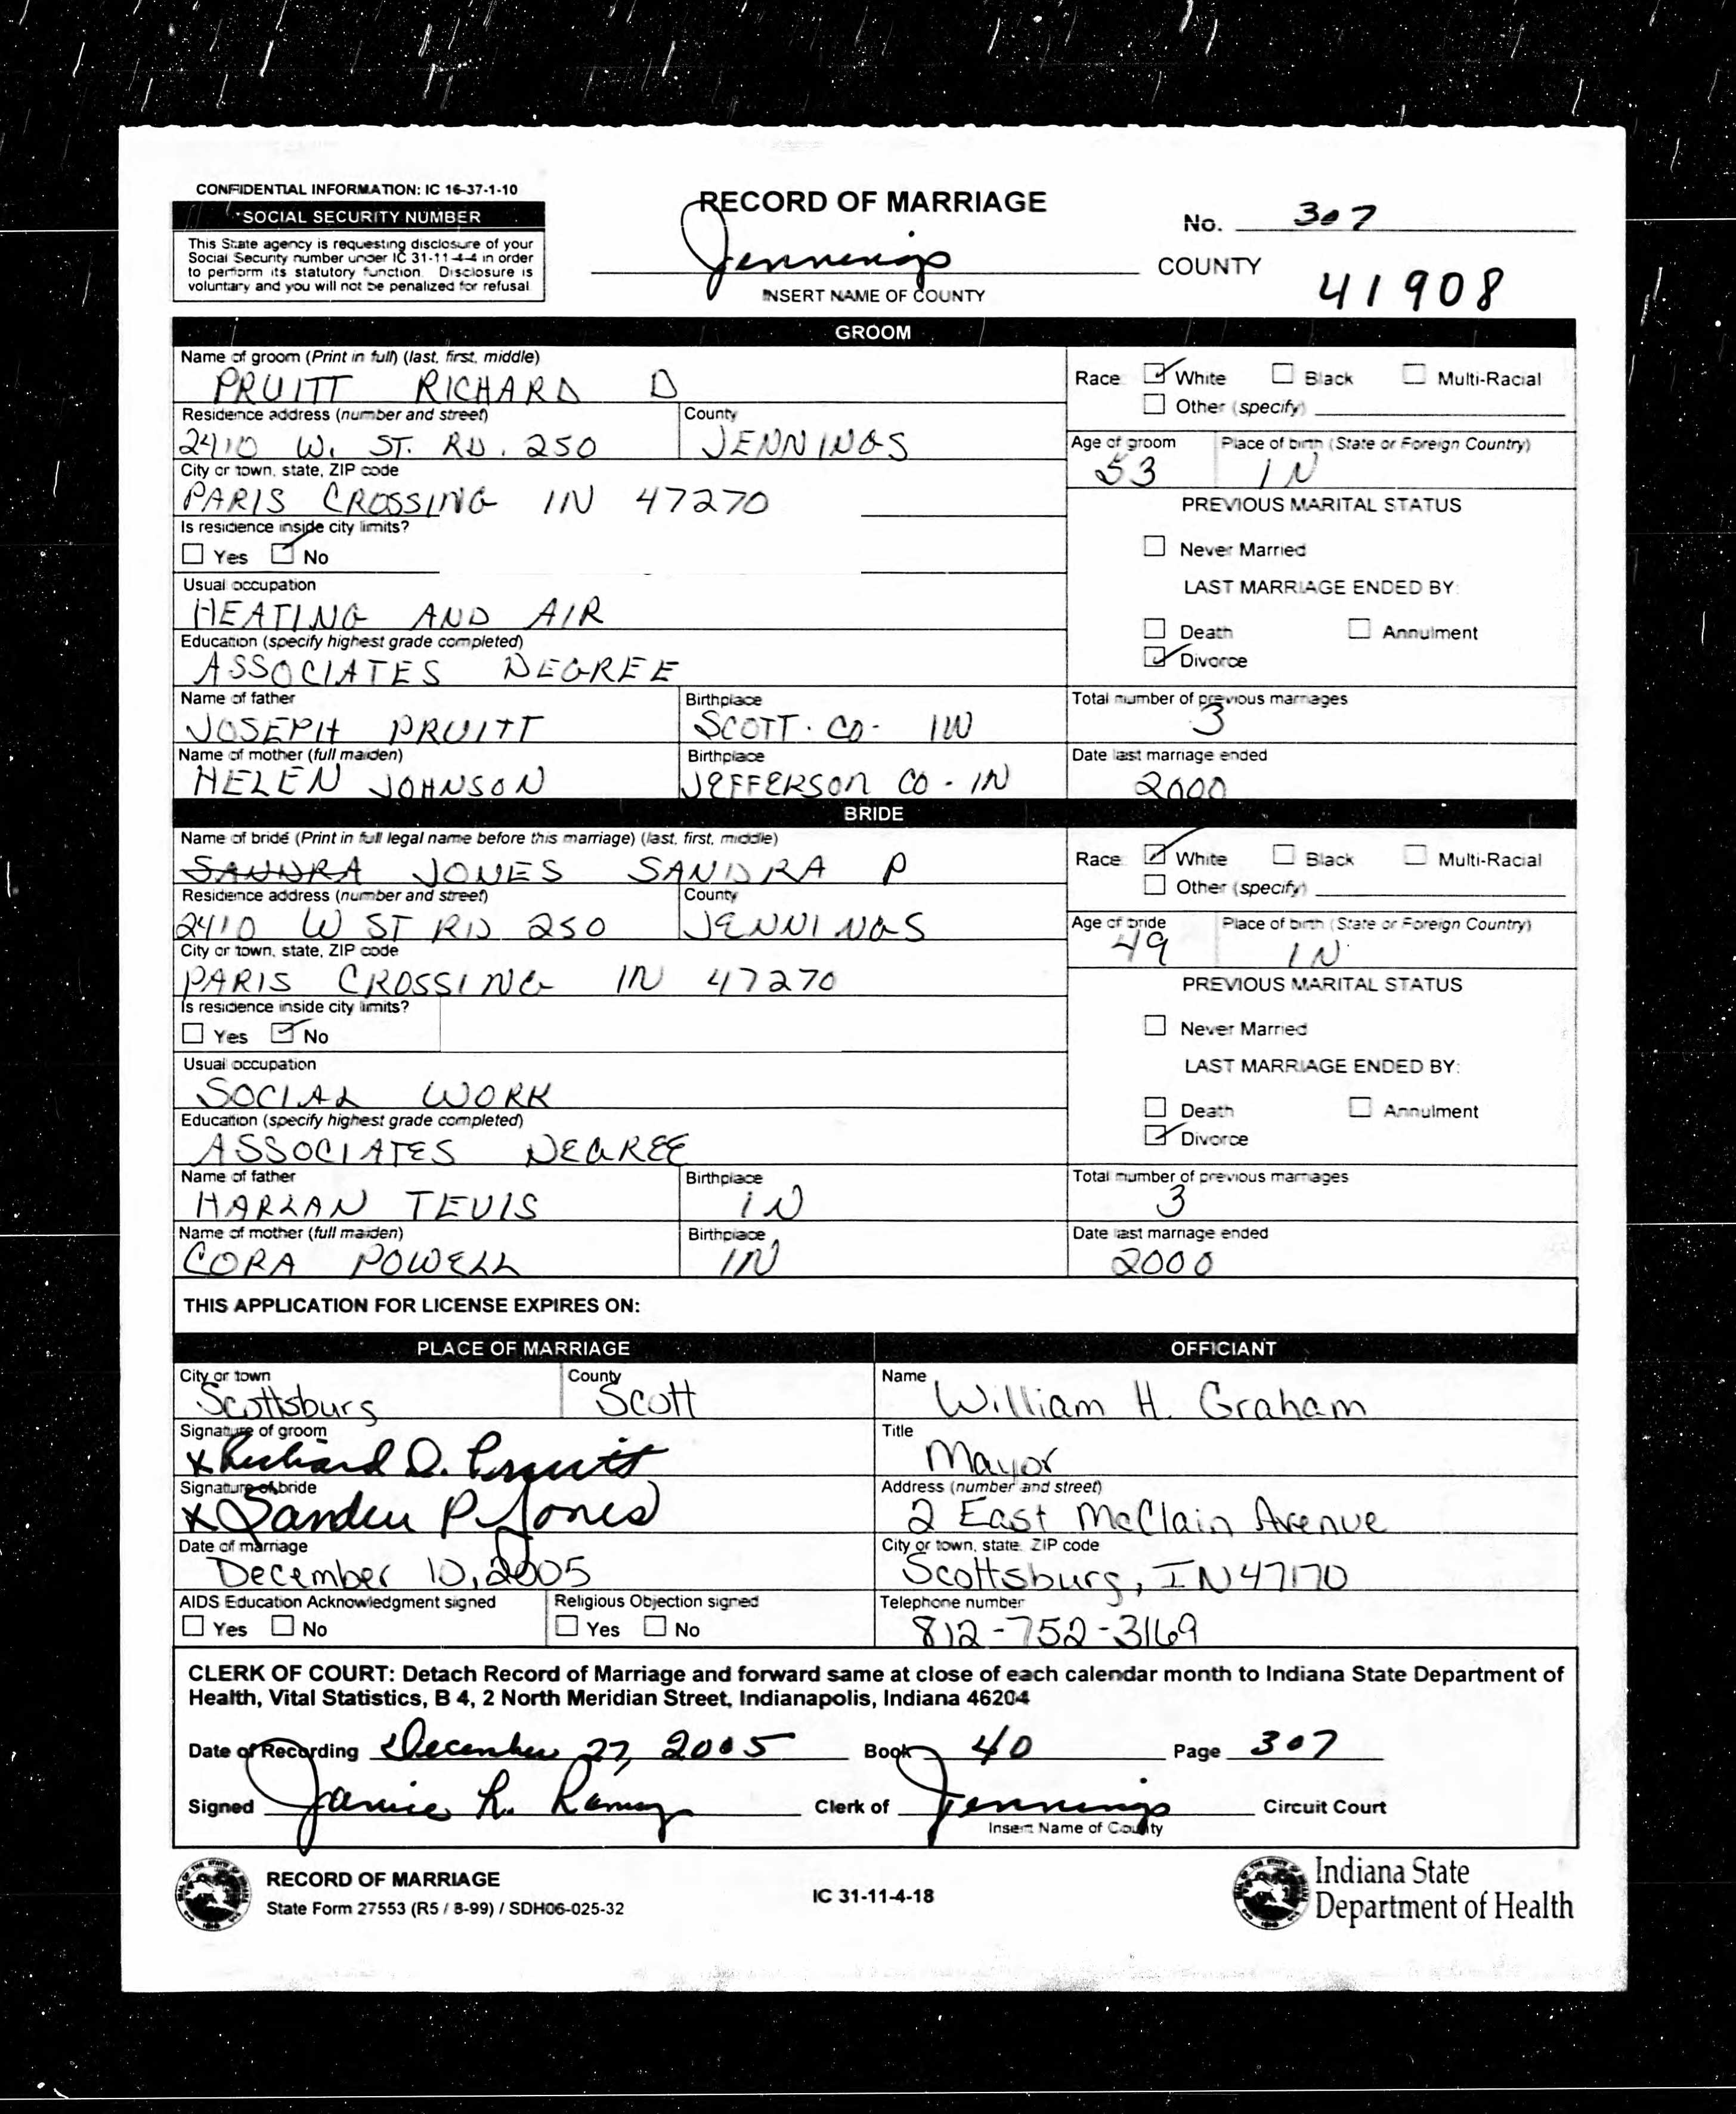 CONFIDENTIAL INFORMATION: IC 16-37-1-10
SOCIAL SECURITY NUMBER
This State agency is requesting disclosure of your
Social Security number under IC 31-11-4-4 in order
to perform its statutory function. Disclosure is
voluntary and you will not be penalized for refusal
RECORD OF MARRIAGE
Jennings COUNTY
INSERT NAME OF COUNTY
No. 307
41908
GROOM
Name of groom (Print in full) (last, first, middle)
PRUITT RICHARD D
Race White Black Multi-Racial
Other (specify)
Residence address (number and street) County
2410 W. ST. RD. 250 JENNINGS
Age of groom Place of birth (State or Foreign Country)
53 IN
City or town, state, ZIP code
PARIS CROSSING IN 47270
PREVIOUS MARITAL STATUS
Is residence inside city limits?
Yes No
Never Married
Usual occupation
HEATING AND AIR
LAST MARRIAGE ENDED BY:
Death Annulment
Divorce
Education (specify highest grade completed)
ASSOCIATES DEGREE
Name of father Birthplace Total number of previous marriages
JOSEPH PRUITT SCOTT. CO- IN 3
Name of mother (full maiden) Birthplace Date last marriage ended
HELEN JOHNSON JEFFERSON CO - IN 2000
BRIDE
Name of bride (Print in full legal name before this marriage) (last, first, middle)
SANDRA JONES SANDRA P
Race White Black Multi-Racial
Other (specify)
Residence address (number and street) County
2410 W ST RD 250 JENNINGS
Age of bride Place of birth (State or Foreign Country)
49 IN
City or town, state, ZIP code
PARIS CROSSING IN 47270
PREVIOUS MARITAL STATUS
Is residence inside city limits?
Yes No
Never Married
Usual occupation
SOCIAL WORK
LAST MARRIAGE ENDED BY:
Death Annulment
Divorce
Education (specify highest grade completed)
ASSOCIATES DEGREE
Name of father Birthplace Total number of previous marriages
HARLAN TEVIS IN 3
Name of mother (full maiden) Birthplace Date last marriage ended
CORA POWELL IN 2000
THIS APPLICATION FOR LICENSE EXPIRES ON:
PLACE OF MARRIAGE OFFICIANT
City or town County Name
Scottsburg Scott William H. Graham
Signature of groom Title
x Richard D. Pruitt Mayor
Signature of bride Address (number and street)
x Sandra P. Jones 2 East McClain Avenue
Date of marriage City or town, state ZIP code
December 10, 2005 Scottsburg, IN 47170
AIDS Education Acknowledgment signed Religious Objection signed Telephone number
Yes No Yes No 812-752-3169
CLERK OF COURT: Detach Record of Marriage and forward same at close of each calendar month to Indiana State Department of
Health, Vital Statistics, B 4, 2 North Meridian Street, Indianapolis, Indiana 46204
Date of Recording December 27, 2005 Book 40 Page 307
Signed Janice L. Ramey Clerk of Jennings Circuit Court
Insert Name of County
RECORD OF MARRIAGE
State Form 27553 (R5 / 8-99) / SDH06-025-32
IC 31-11-4-18
Indiana State
Department of Health